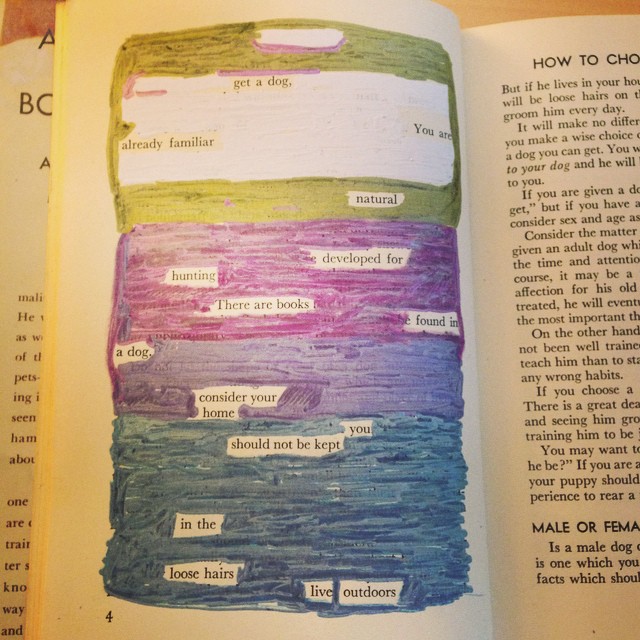 A
BO
A
mali
He
as w
of th
pets-
ing i
seen
ham
abou
one
are
train
ter s
kno
way
and
get a dog,
You are
already familiar
natural
developed for
hunting
There are books
found in
a dog,
consider your
home
you
should not be kept
in the
loose hairs
live outdoors
4
HOW TO CHO
But if he lives in your hou
will be loose hairs on th
groom him every day.
It will make no differ
you make a wise choice o
a dog you can get. You w
to your dog and he will
to you.
If you are given a do
get," but if you have a
consider sex and age as
Consider the matter
given an adult dog whi
the time and attentio
course, it may be a
affection for his old
treated, he will event
the most important th
On the other hand
not been well traine
teach him than to sta
any wrong habits.
If you choose a
There is a great dea
and seeing him gro
training him to be
You may want to
he be?" If you are a
your puppy should
perience to rear a
MALE OR FEMA
Is a male dog o
is one which you
facts which shoul